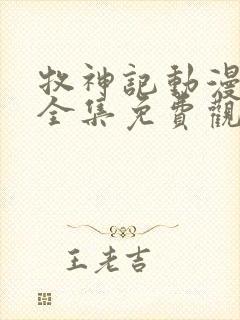 牧神記動漫
全集免費觀
王老吉